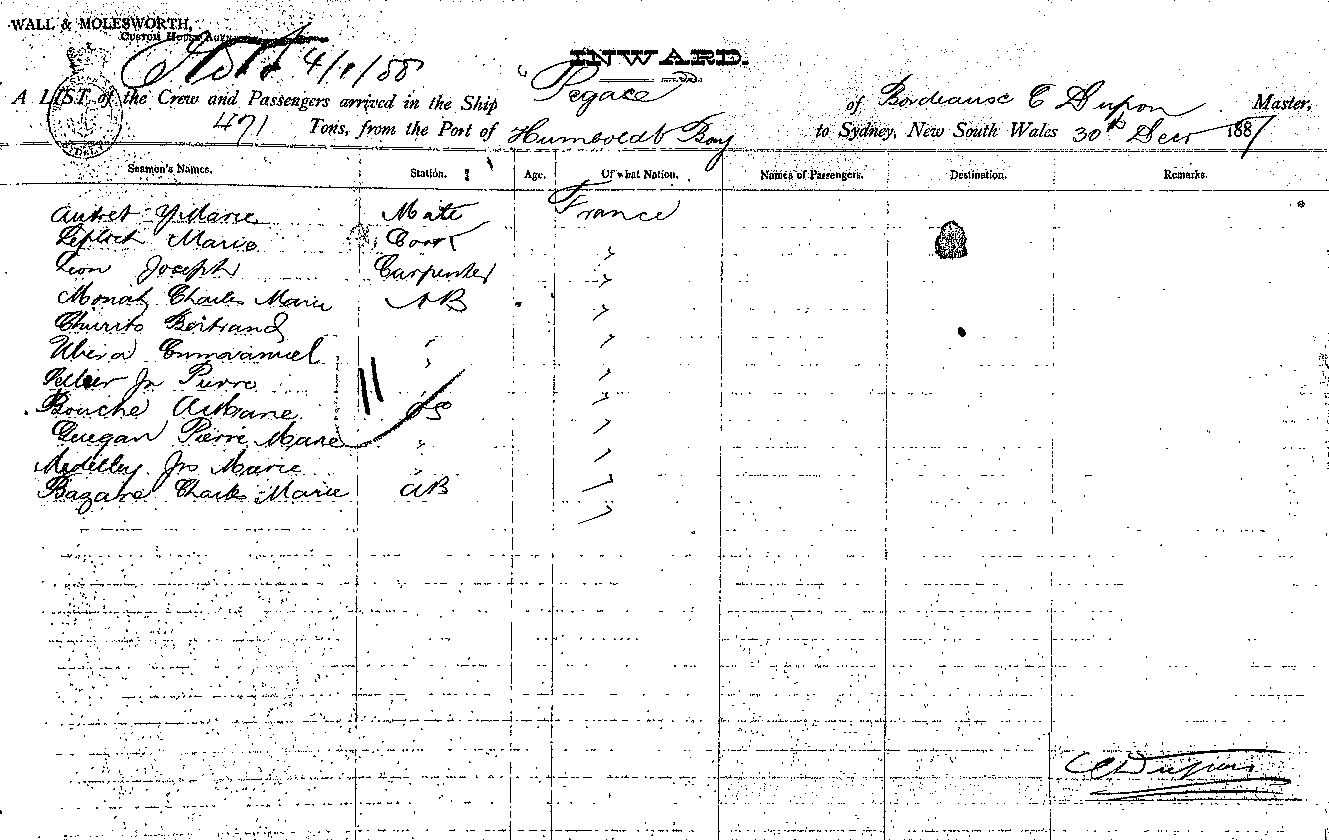 WALL & MOLESWORTH,
Custom House Agents
4/1/88
INWARD.
"Pegase
A LIST of the Crew and Passengers arrived in the Ship of Bordeause C Dupon Master,
471 Tons, from the Port of Humboldt Bay to Sydney, New South Wales 30th Decr 1887
Seamen's Names. Station. Age. Of what Nation. Names of Passengers. Destination. Remarks.
Autret Y Marie Mate France
Marie Cook "
Leon Joseph Carpenter "
Charles Marie AB "
Bertrand "
Emmanuel " "
Jn Pierre " "
Bouche OS "
Guegan Pierre Marie " "
Marie " "
Charles Marie AB "
11
C Dupon